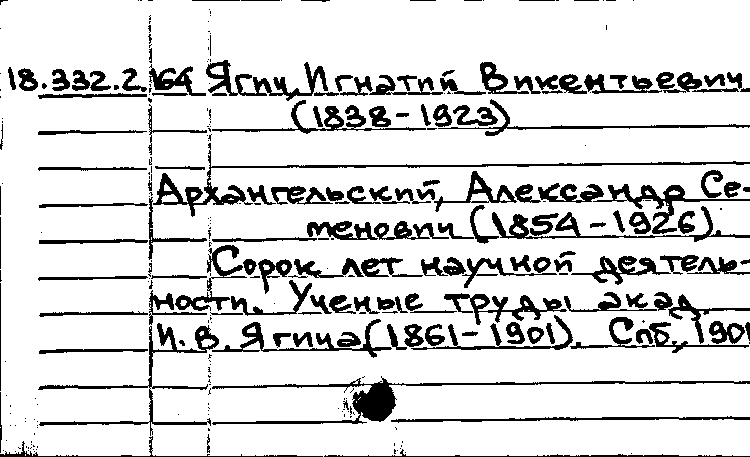 18.332.2.164 Ягич, Игнатий Викентьевич
(1838-1923)
Архангельский, Александр Се-
менович (1854-1926).
Сорок лет научной деятель-
ности. Ученые труды акад.
И.В. Ягича (1861-1901). Спб., 1901